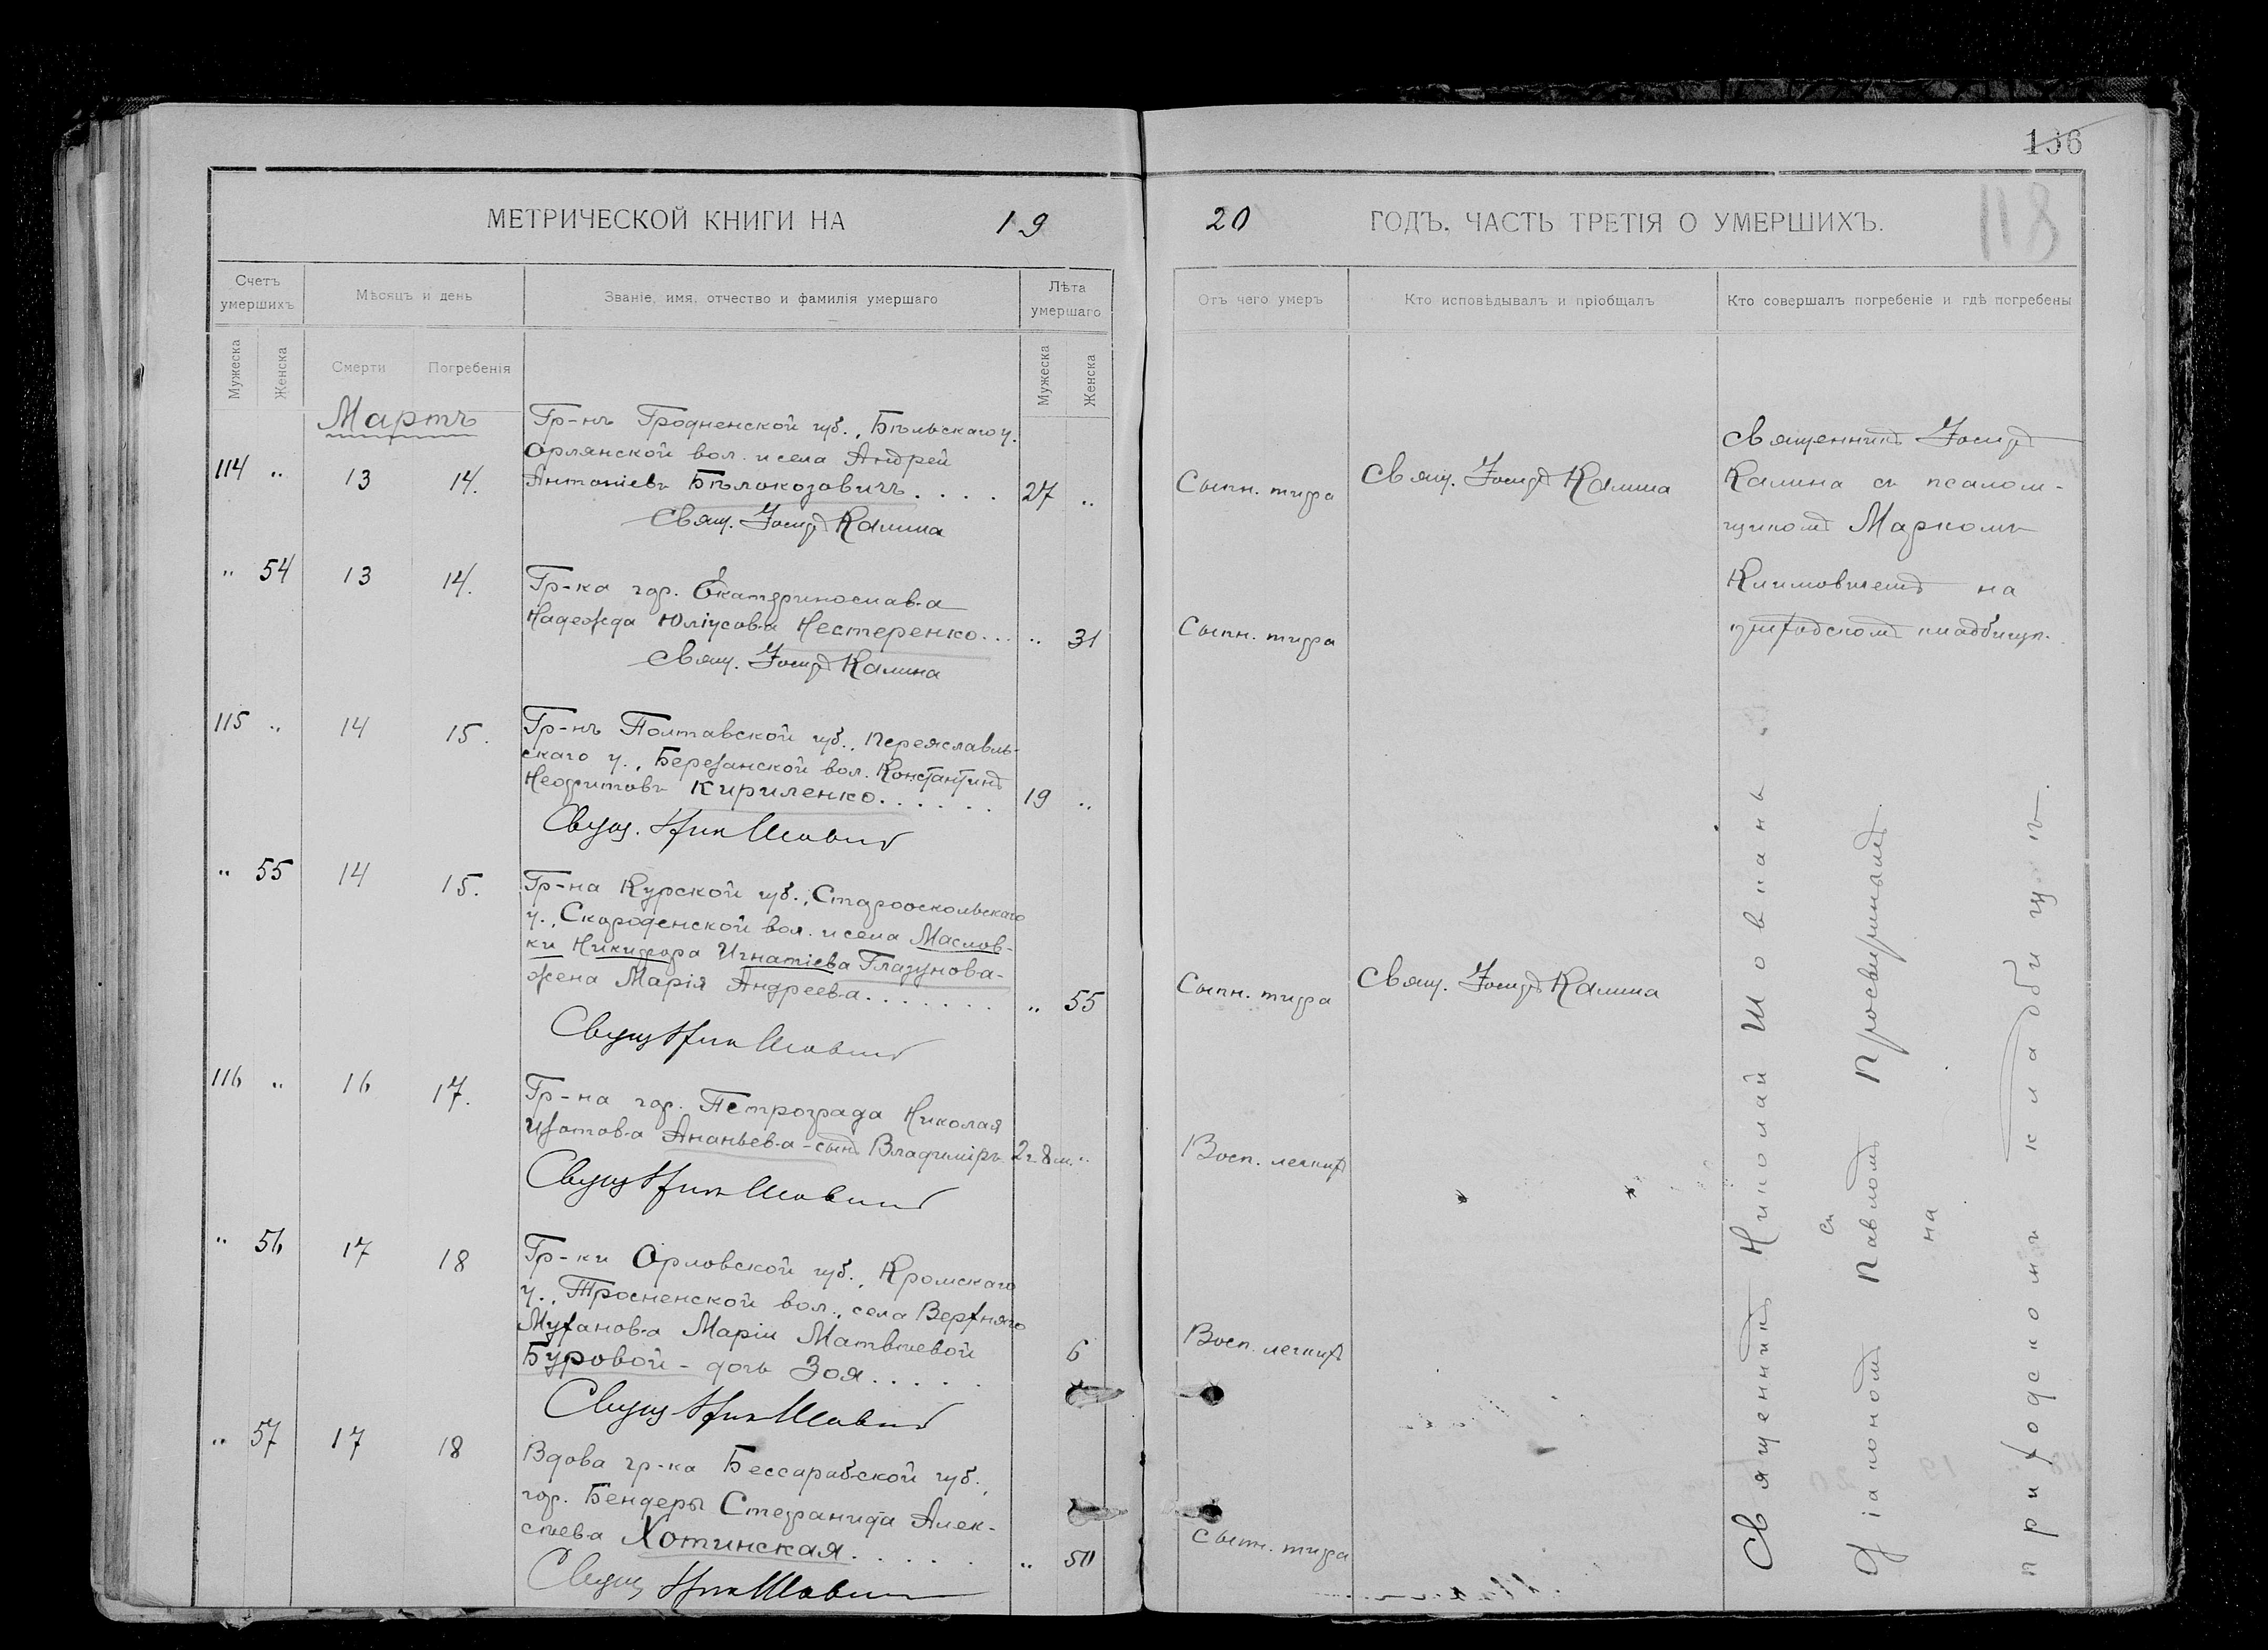 136
118
МЕТРИЧЕСКОЙ КНИГИ НА 19
20 ГОДЪ. ЧАСТЬ ТРЕТІЯ О УМЕРШИХЪ.
Счетъ умершихъ
Мѣсяцъ и день
Званіе, имя, отчество и фамилія умершаго
Лѣта умершаго
Отъ чего умеръ
Кто исповѣдывалъ и пріобщалъ
Кто совершалъ погребеніе и гдѣ погребены
Мужеска
Женска
Смерти
Погребенія
Мужеска
Женска
Мартъ
114 " 13 14.
Гр-нъ Гродненской губ., Бѣльскаго у.
Орлянской вол. и села Андрей
Антоніевъ Бѣлокозовичъ.... 27 "
Свящ. Іосифъ Калина
Сыпн. тифа
Свящ. Іосифъ Калина
Священникъ Іосифъ
Калина съ псалом-
щикомъ Маркомъ
Климовичемъ на
приходскомъ кладбищѣ.
" 54 13 14.
Гр-ка гор. Екатеринослава
Надежда Юліусова Нестеренко... " 31
Свящ. Іосифъ Калина
Сыпн. тифа
115 " 14 15.
Гр-нъ Полтавской губ., Переяславль-
скаго у., Березанской вол. Константинъ
Неофитовъ Кириленко...... 19 "
Свящ. Ник Шовпан
" 55 14 15.
Гр-на Курской губ., Старооскольскаго
у., Скароденской вол. и села Маслов-
ки Никифора Игнатіева Глазунова-
жена Марія Андреева....... " 55
Свящ Ник Шовпан
Сыпн. тифа
Свящ. Іосифъ Калина
116 " 16 17.
Гр-на гор. Петрограда Николая
Изотова Ананьева-сынъ Владиміръ 2 г. 8 м. "
Свящ Ник Шовпан
Восп. легкихъ
" 56 17 18
Гр-ки Орловской губ., Кромскаго
у., Тросненской вол., села Верхняго
Муханова Маріи Матвѣевой
Буровой - дочь Зоя..... 6
Свящ Ник Шовпан
Восп. легкихъ
" 57 17 18
Вдова гр-ка Бессарабской губ.,
гор. Бендеры Стефанида Алек-
сѣева Хотинская...... " 50
Свящ Ник Шовпан
Сыпн. тифа
Священникъ Николай Шовпанъ
съ
діакономъ Павломъ Просвирнинымъ
на
приходскомъ кладбищѣ.